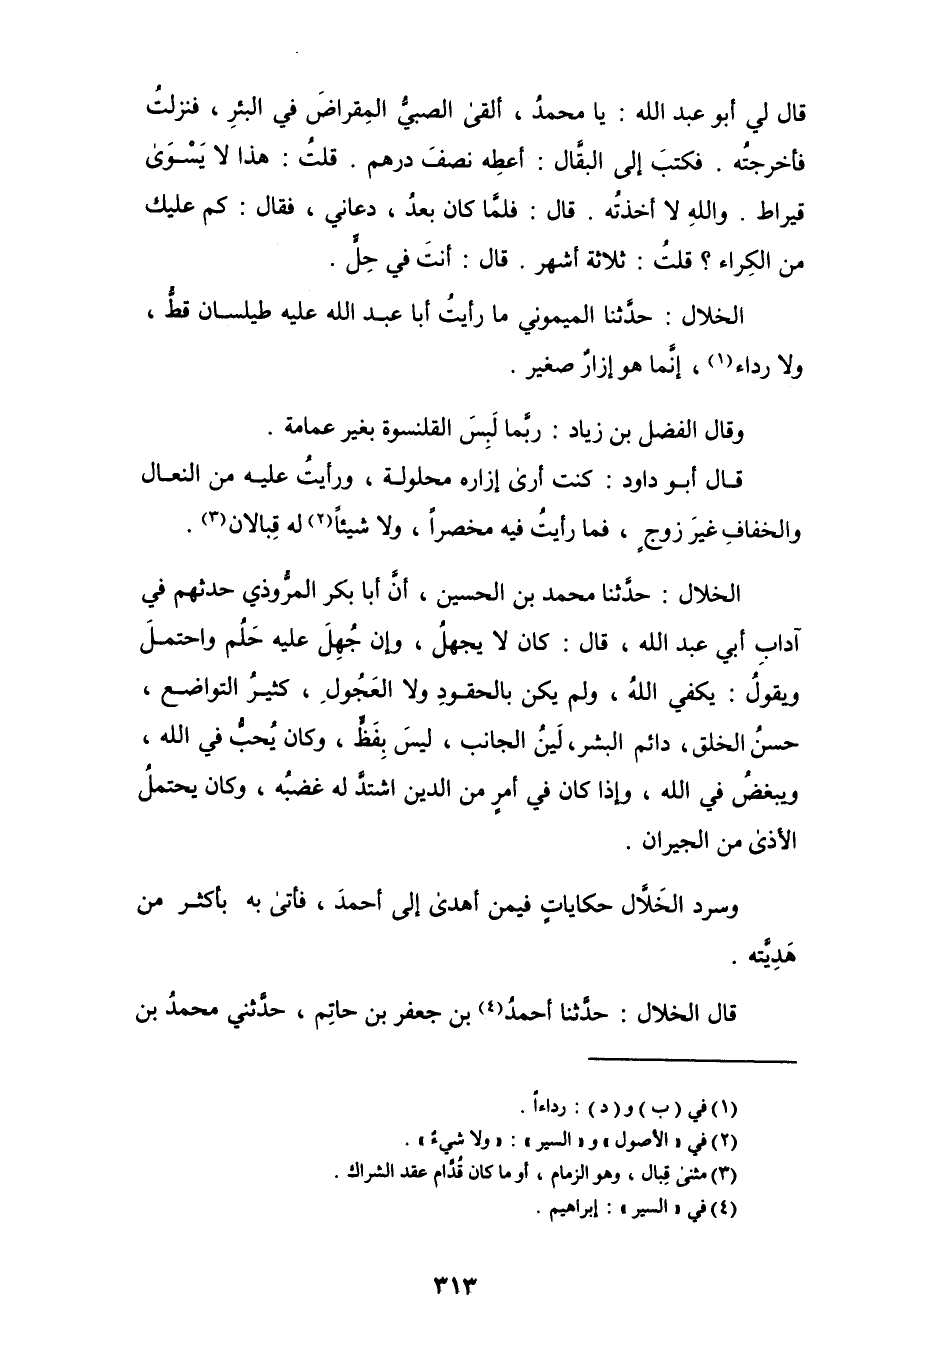 قال لي أبو عبد الله : يا محمدُ ، ألقىٰ الصبيُّ المِقراضَ في البئرِ ، فنزلتُ
فأخرجتُه . فكتبَ إلى البقَّال : أعطِه نصفَ درهم . قلتُ : هذا لا يَسْوَىٰ
قيراط . واللهِ لا أخذتُه . قال : فلمَّا كان بعدُ ، دعاني ، فقال : كم عليك
من الكِراء ؟ قلتُ : ثلاثة أشهر . قال : أنتَ في حِلٍّ .
الخلال : حدَّثنا الميموني ما رأيتُ أبا عبد الله عليه طيلسان قطُّ ،
ولا رداء(١) ، إنَّما هو إزارٌ صغير .
وقال الفضل بن زياد : ربَّما لَبِسَ القلنسوة بغير عمامة .
قال أبو داود : كنت أرىٰ إزاره محلولة ، ورأيتُ عليه من النعال
والخفافِ غيرَ زوجٍ ، فما رأيتُ فيه مخصراً ، ولا شيئاً(٢) له قِبالان(٣) .
الخلال : حدَّثنا محمد بن الحسين ، أنَّ أبا بكر المرُّوذي حدثهم في
آدابِ أبي عبد الله ، قال : كان لا يجهلُ ، وإن جُهِلَ عليه حَلُم واحتملَ
ويقولُ : يكفي اللهُ ، ولم يكن بالحقودِ ولا العَجُولِ ، كثيرُ التواضع ،
حسنُ الخلق ، دائم البشر ، لَينُ الجانب ، ليسَ بِفَظٍّ ، وكان يُحبُّ في الله ،
ويبغضُ في الله ، وإذا كان في أمرٍ من الدين اشتدَّ له غضبُه ، وكان يحتملُ
الأذىٰ من الجيران .
وسرد الخَلَّال حكاياتٍ فيمن أهدىٰ إلى أحمدَ ، فأتىٰ به بأكثر من
هَدِيَّته .
قال الخلال : حدَّثنا أحمدُ(٤) بن جعفر بن حاتِم ، حدَّثني محمدُ بن
(١) في ( ب ) و ( د ) : رداءاً .
(٢) في « الأصول » و « السير » : « ولا شيءٌ » .
(٣) مثنىٰ قِبال ، وهو الزمام ، أو ما كان قُدَّام عقد الشراك .
(٤) في « السير » : إبراهيم .
٣١٣